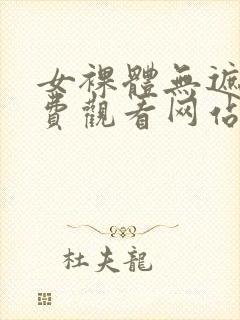 女裸體無遮
費觀看网佔
杜夫龍